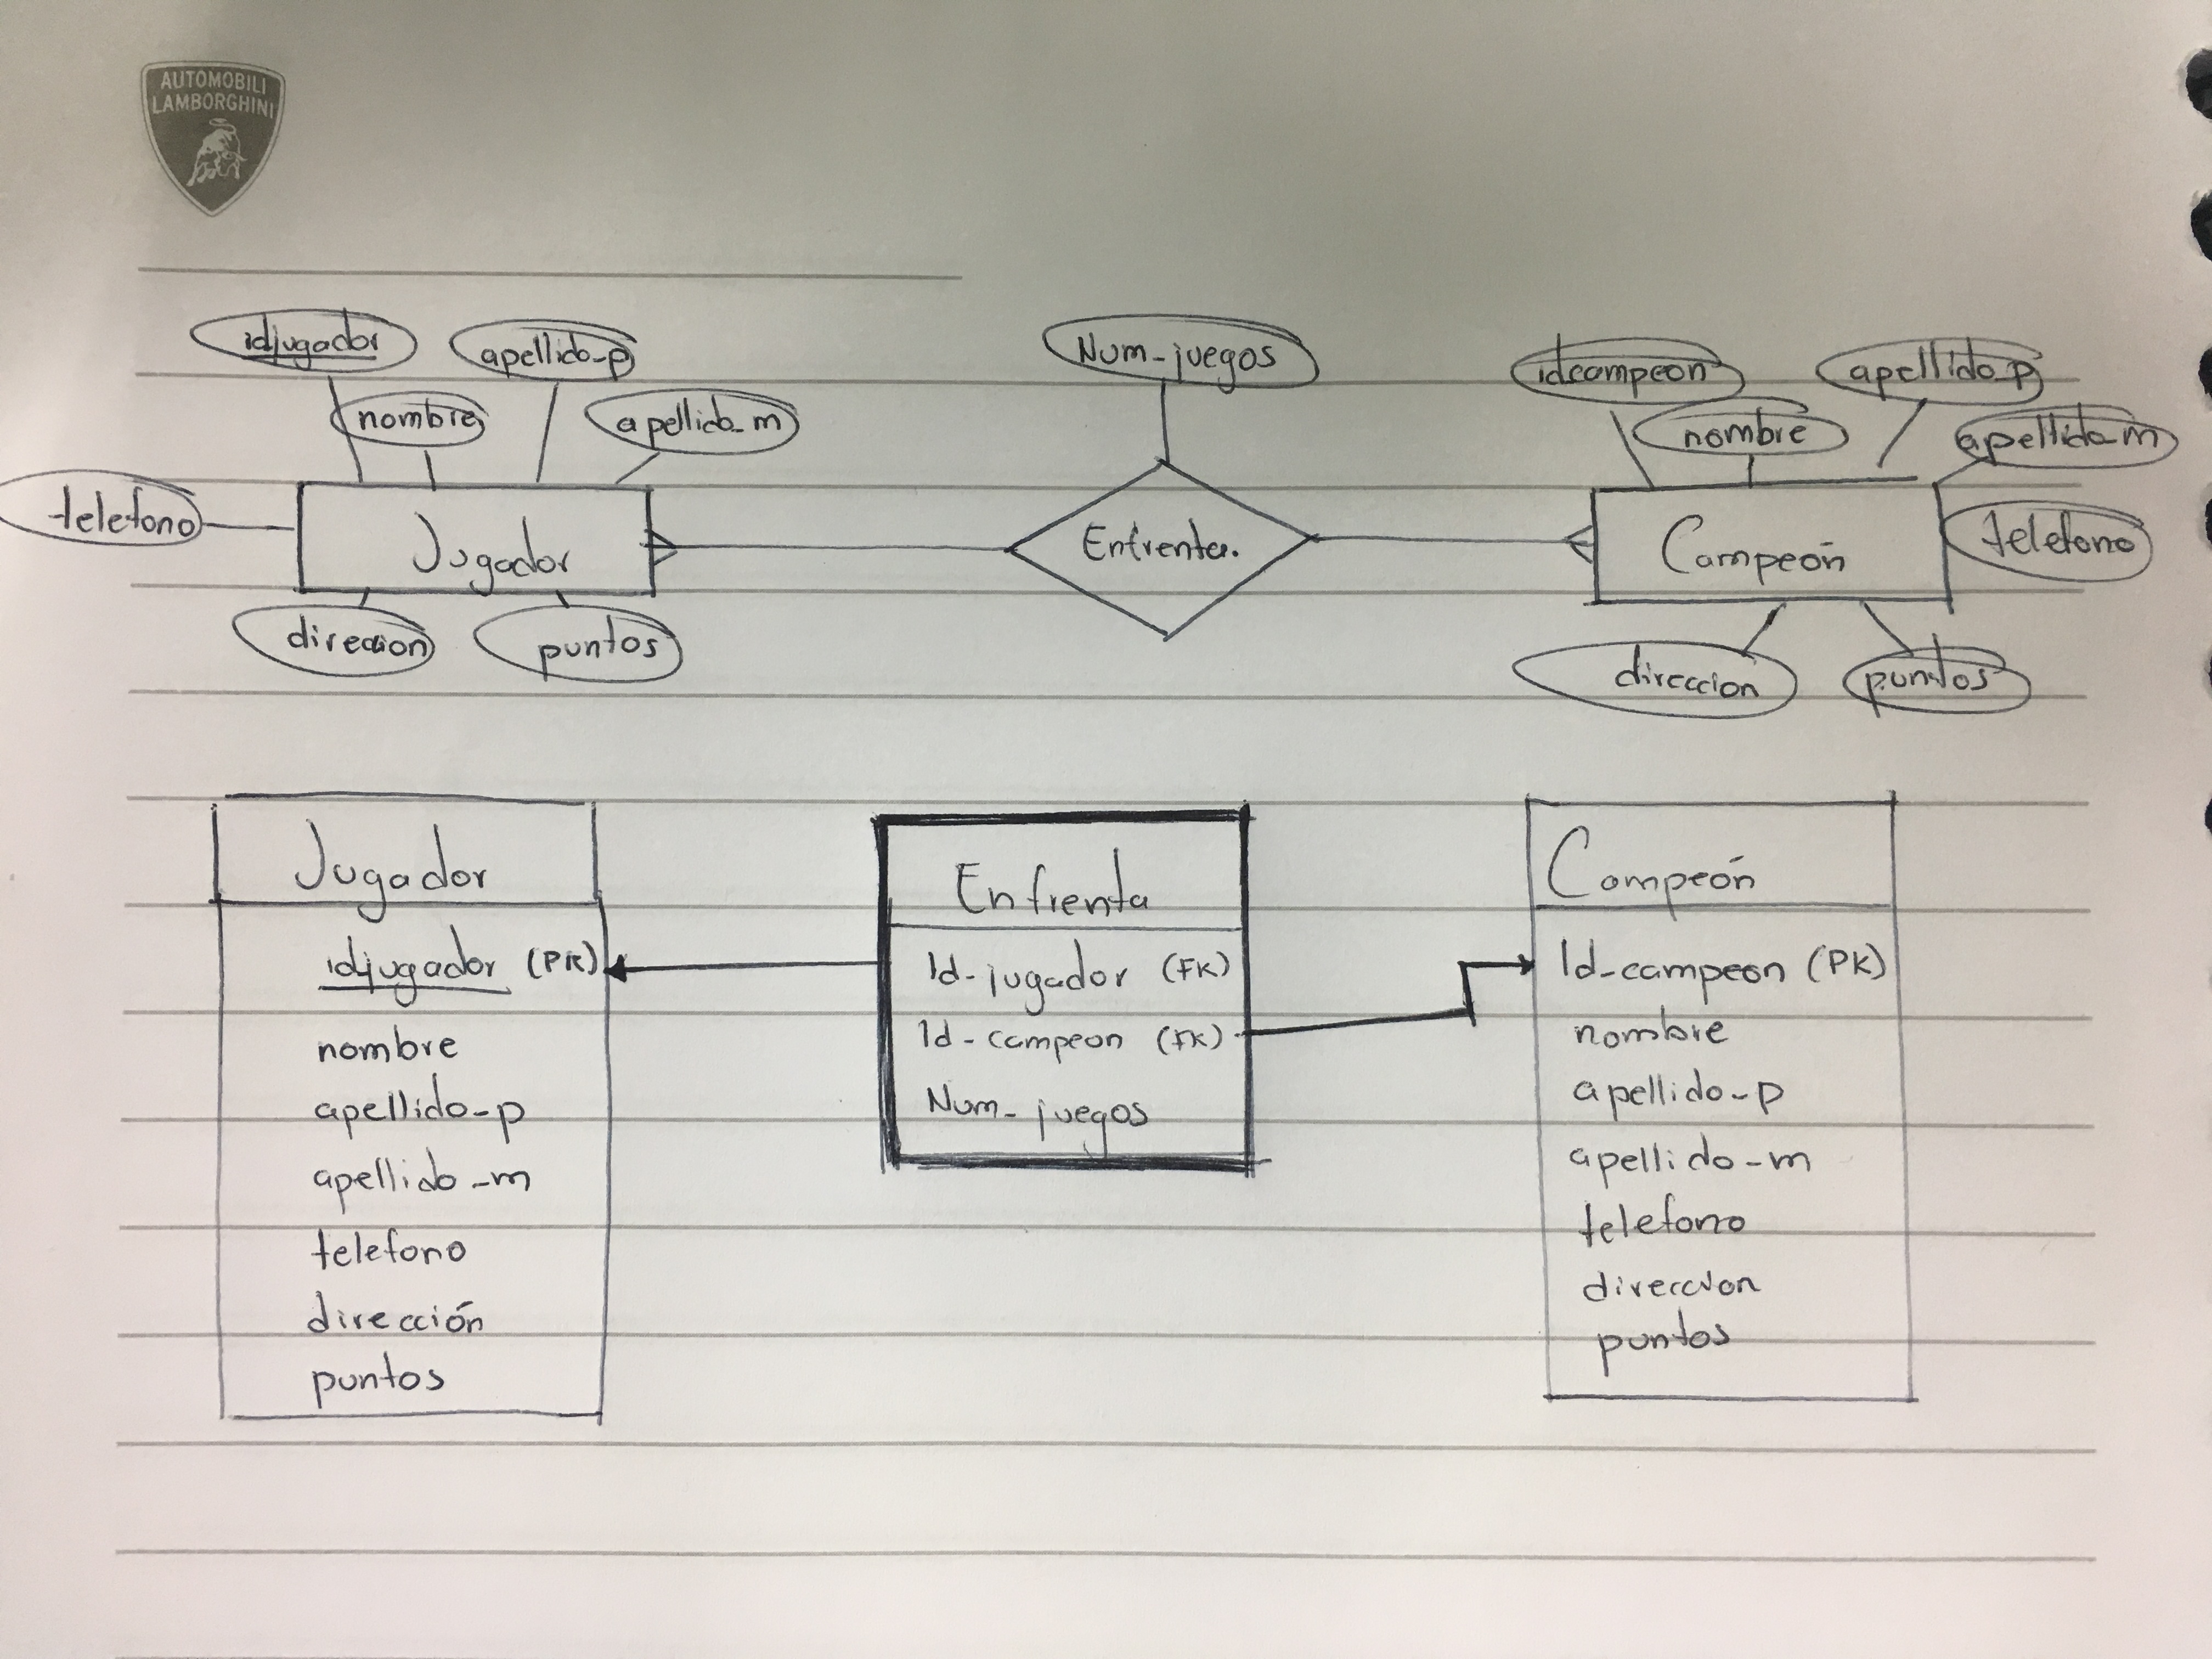 AUTOMOBILI
LAMBORGHINI
idjugador
apellido-p
nombre
apellido_m
telefono
Jugador
direccion
puntos
Num-juegos
Enfrenta.
idcampeon
apellido_p
nombre
apellido_m
Campeón
telefono
direccion
puntos
Jugador
idjugador (PK)
nombre
apellido-p
apellido-m
telefono
dirección
puntos
Enfrenta
Id-jugador (FK)
Id-campeon (FK)
Num-juegos
Campeón
Id-campeon (PK)
nombre
apellido-p
apellido-m
telefono
direccion
puntos